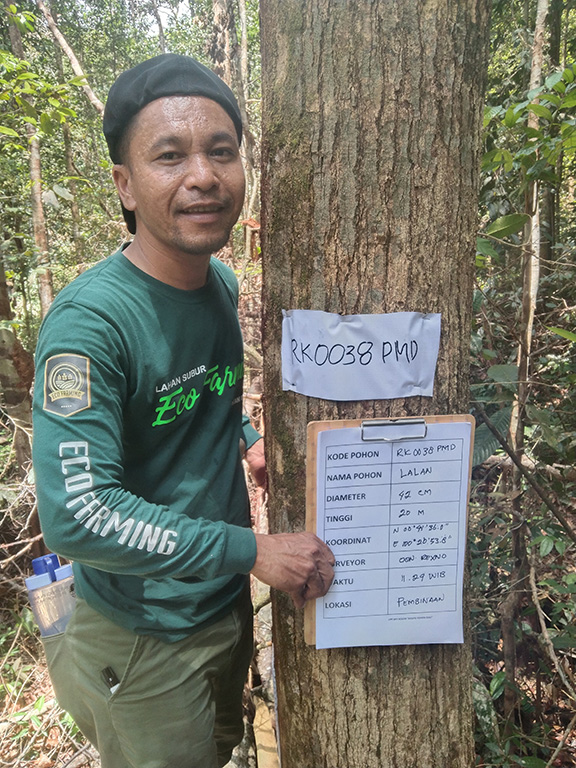 LAHAN SUBUR
Eco Farm
ECO FARMING
ECOFARMING
RK0038 PMD
KODE POHON RK0038 PMD
NAMA POHON LALAN
DIAMETER 42 CM
TINGGI 20 M
KOORDINAT N 00°41'36.0"
E 100°20'53.8"
RVEYOR
AKTU 11.29 WIB
LOKASI PEMBINAAN